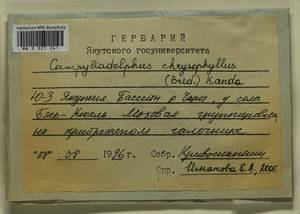 Herbarium MW, Bryophyta
ГЕРБАРИЙ
Якутского госуниверситета
Campyliadelphus chrysophyllus
(Brid.) Kanda
Ю-З Якутия. Бассейн р Чара, у села
Бясь-Кюель. Моховая группировка
на прибрежном галечнике
"  " 08 1996 г. Собр. Кривошапкин
Опр. Игнатова Е.А., 2006